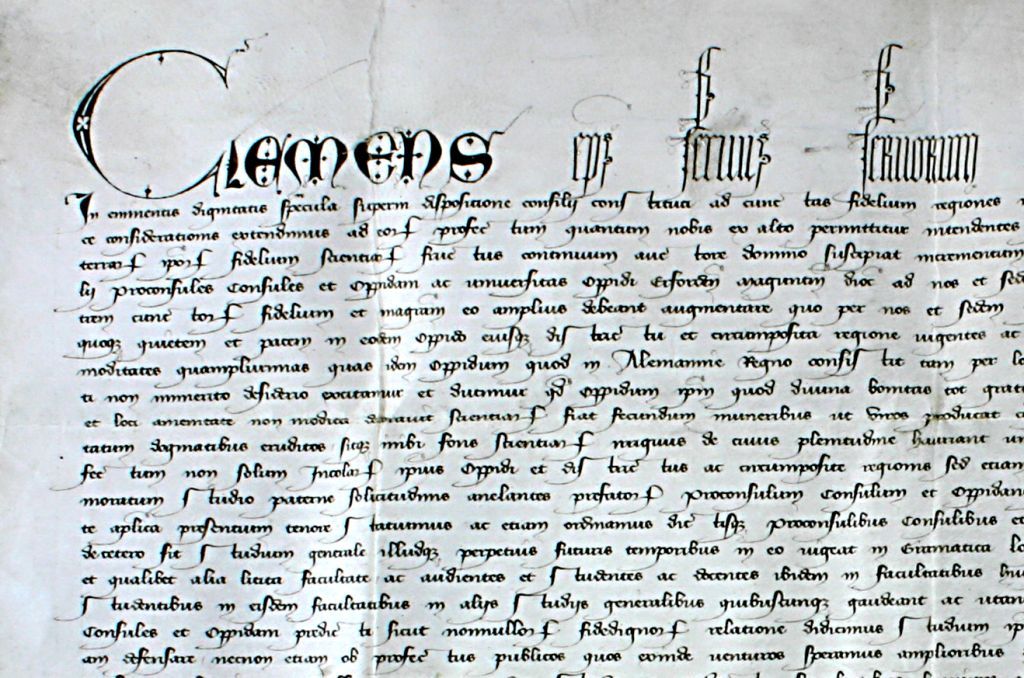 Clemens eps servus servorum
In eminentis dignitatis specula superni dispositione consilij constituti ad cunctas fidelium regiones
ce considerationis extendimus ad eorum profectum quantum nobis ex alto permittitur intendentes
terrarum ipsorum fidelium scientiarum fructus continuum auctore domino suscipiat incrementum
lij Proconsules Consules et Oppidani ac universitas Oppidi Erforden Maguntin dioc ad nos et sedem
trem cunctorum fidelium et magnam eo amplius debeant augmentare quo per nos et sedem
quoque quietem et pacem in eodem Oppido eiusque districtu et circumposita regione vigentes ac
moditates quamplurimas quas idem Oppidum quod in Alemannie Regno consistit tam per
ti non immerito desiderio excitamur et ducimur quod Oppidum ipm quod divina bonitas tot
et loci amenitate non modica decoravit scientiarum fiat fecundum muneribus ut viros producat
tatum dogmatibus eruditos sitque inibi fons scientiarum irriguus de cuius plenitudine hauriant
fectum non solum Incolarum ipsius Oppidi et districtus ac circumposite regionis sed etiam
moratum studio paterne solicitudinis anelantes prefatorum Proconsulum Consulum et Oppidanorum
te aplica presentium tenore statuimus ac etiam ordinamus dictisque Proconsulibus Consulibus et
decetero sit studium generale illudque perpetuis futuris temporibus in eo vigeat in Gramatica
et qualibet alia licita facultate ac audientes et studentes ac docentes ibidem in facultatibus
studentibus in eisdem facultatibus in alijs studijs generalibus quibuscunque gaudeant ac
Consules et Oppidani predicti sicut nonnullorum fidedignorum relatione didicimus studium
am defensare necnon etiam ob profectus publicos quos exinde venturos speramus amplioribus